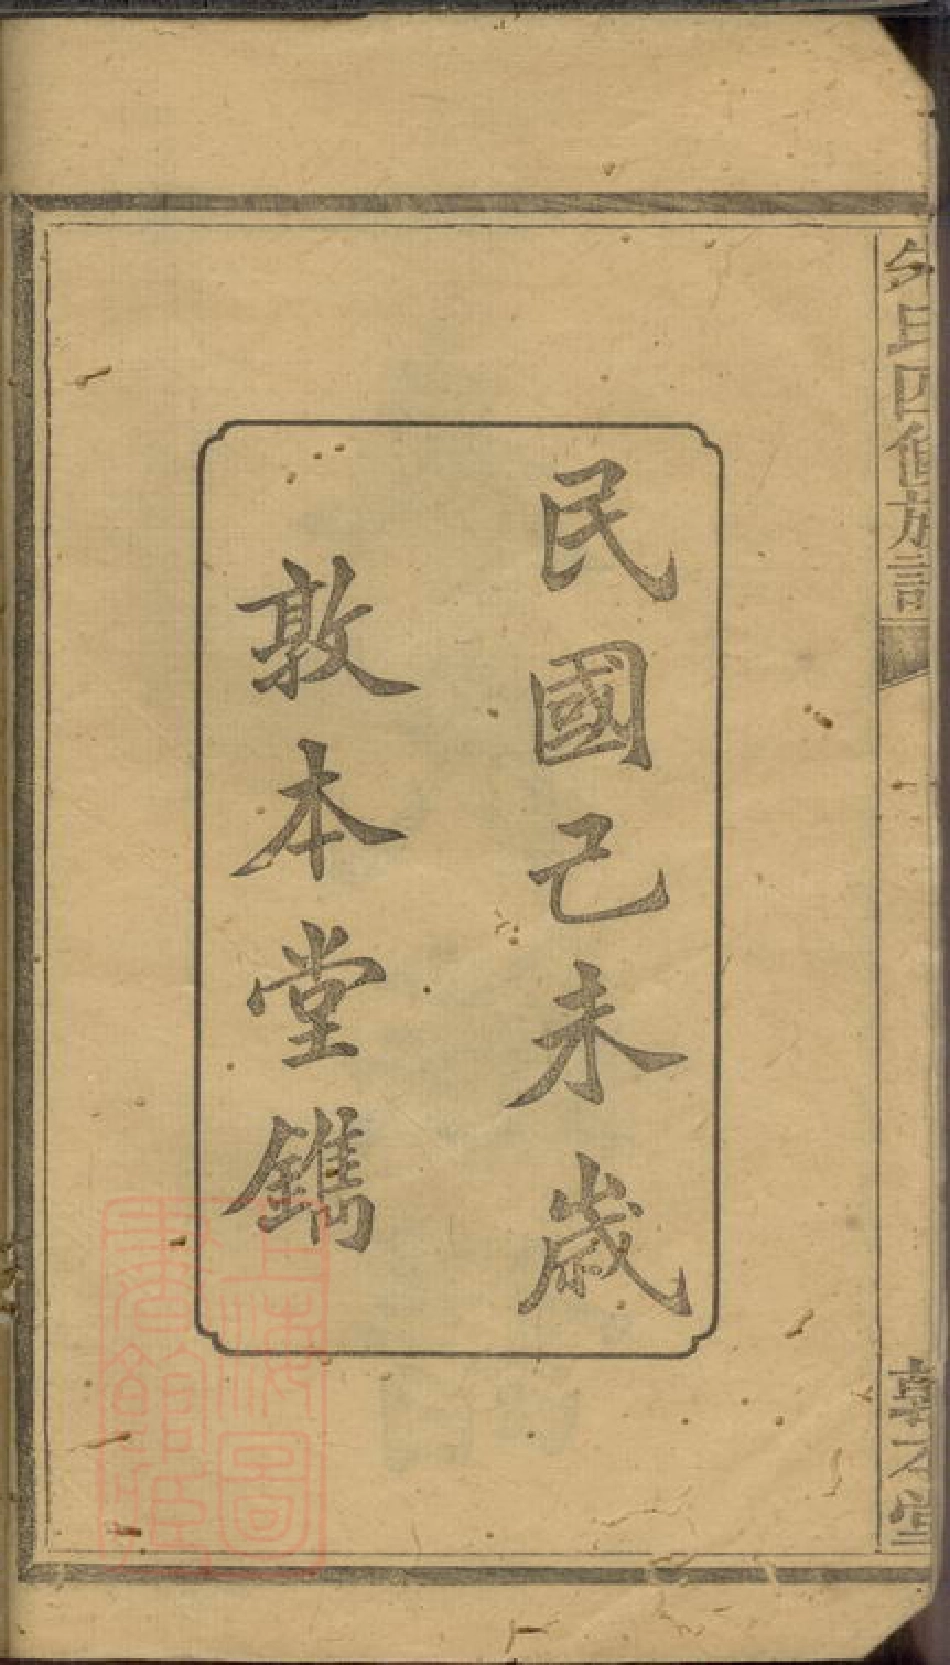 民國己未歲
敦本堂鐫
氏四修族譜
敦本堂
上海圖書館藏